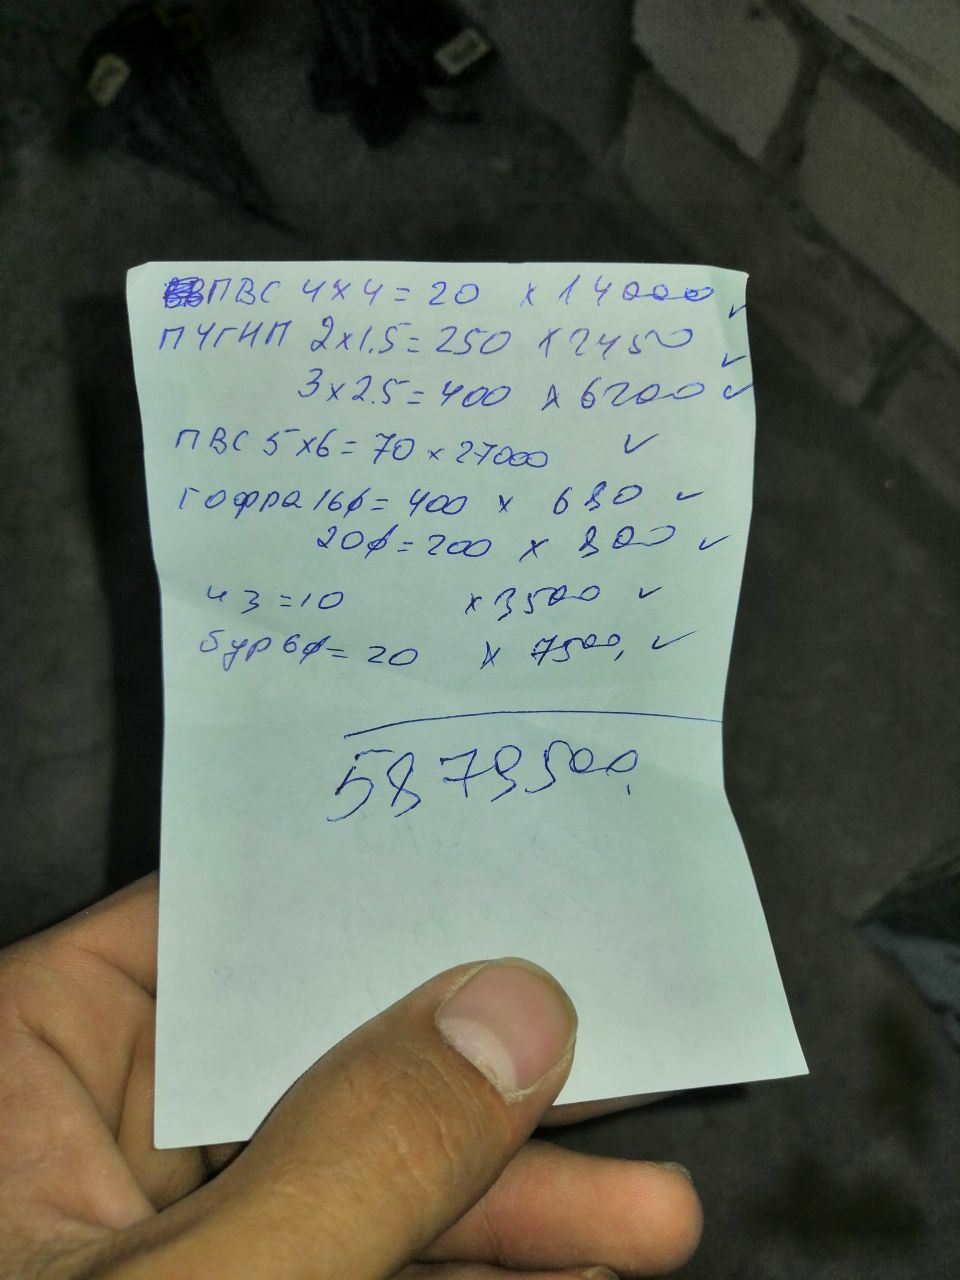 ПВС 4x4 = 20 x 14000 ✓
ПУГНП 2x1.5 = 250 x 2450 ✓
3x2.5 = 400 x 6200 ✓
ПВС 5x6 = 70 x 27000 ✓
гофра 16ø = 400 x 680 ✓
20ø = 200 x 800 ✓
чз = 10 x 3500 ✓
бур 6ø = 20 x 7500, ✓
5879500,